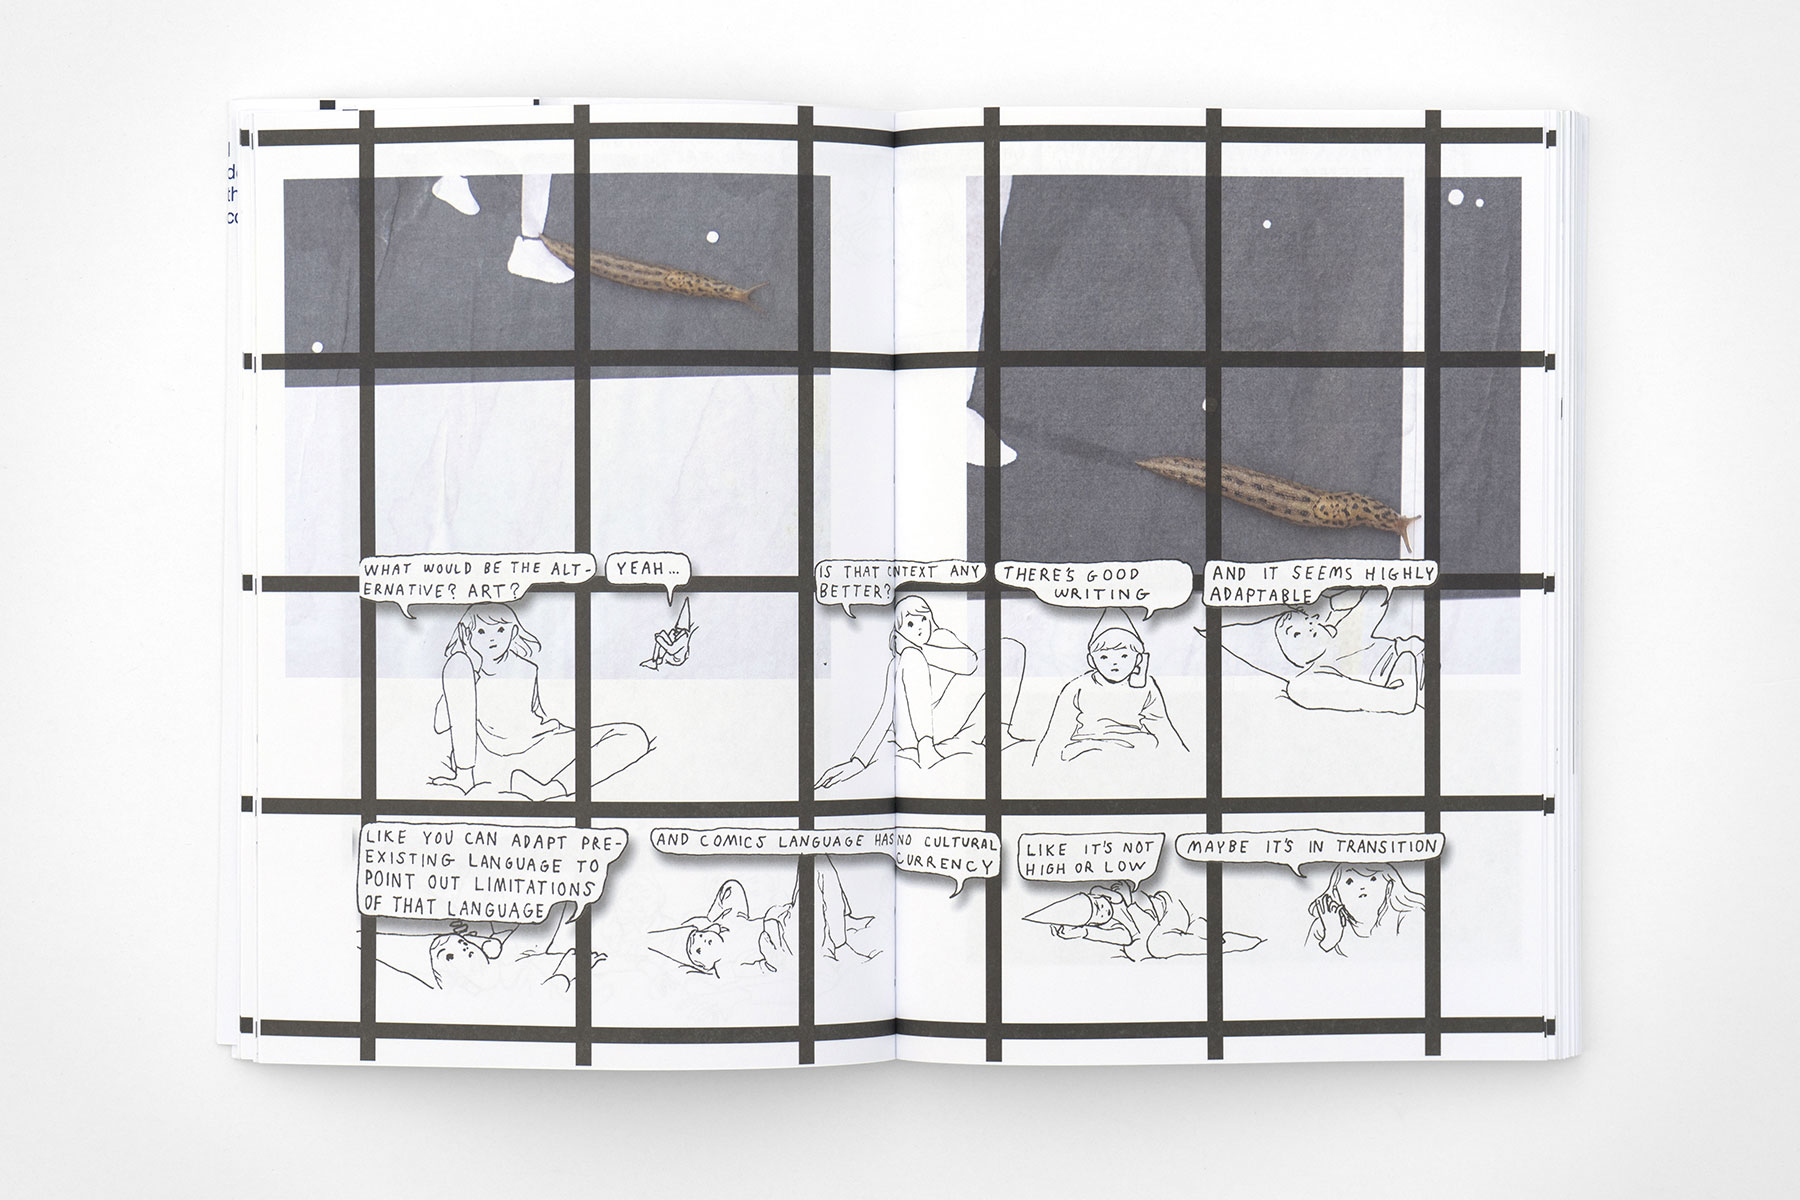 WHAT WOULD BE THE ALT-
ERNATIVE? ART?
YEAH...
IS THAT CONTEXT ANY
BETTER?
THERE'S GOOD
WRITING
AND IT SEEMS HIGHLY
ADAPTABLE
LIKE YOU CAN ADAPT PRE-
EXISTING LANGUAGE TO
POINT OUT LIMITATIONS
OF THAT LANGUAGE
AND COMICS LANGUAGE HAS NO CULTURAL
CURRENCY
LIKE IT'S NOT
HIGH OR LOW
MAYBE IT'S IN TRANSITION